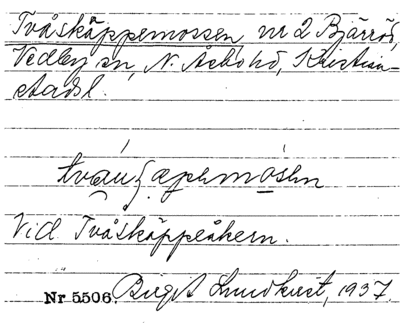 Tvåskäppemossen, nr 2 Bjärröd,
Vedby sn, N. Åsbo hd, Kristian-
stads l.
Vid Tvåskäppeåkern.
Nr 5506. Birgit Lundkvist, 1937.